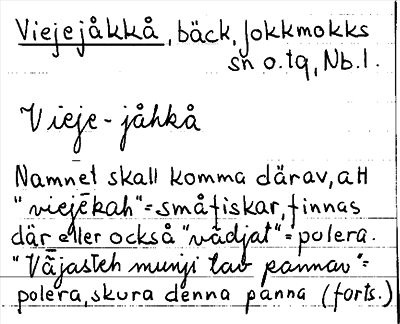 Viejejåkkå, bäck, Jokkmokks
sn o. tg, Nb. l.
Vieje - jåhkå
Namnet skall komma därav, att
"viejēkah" = småfiskar, finnas
där eller också "vādjat" = polera.
"Vājasteh munji tav pannav" =
polera, skura denna panna (forts.)